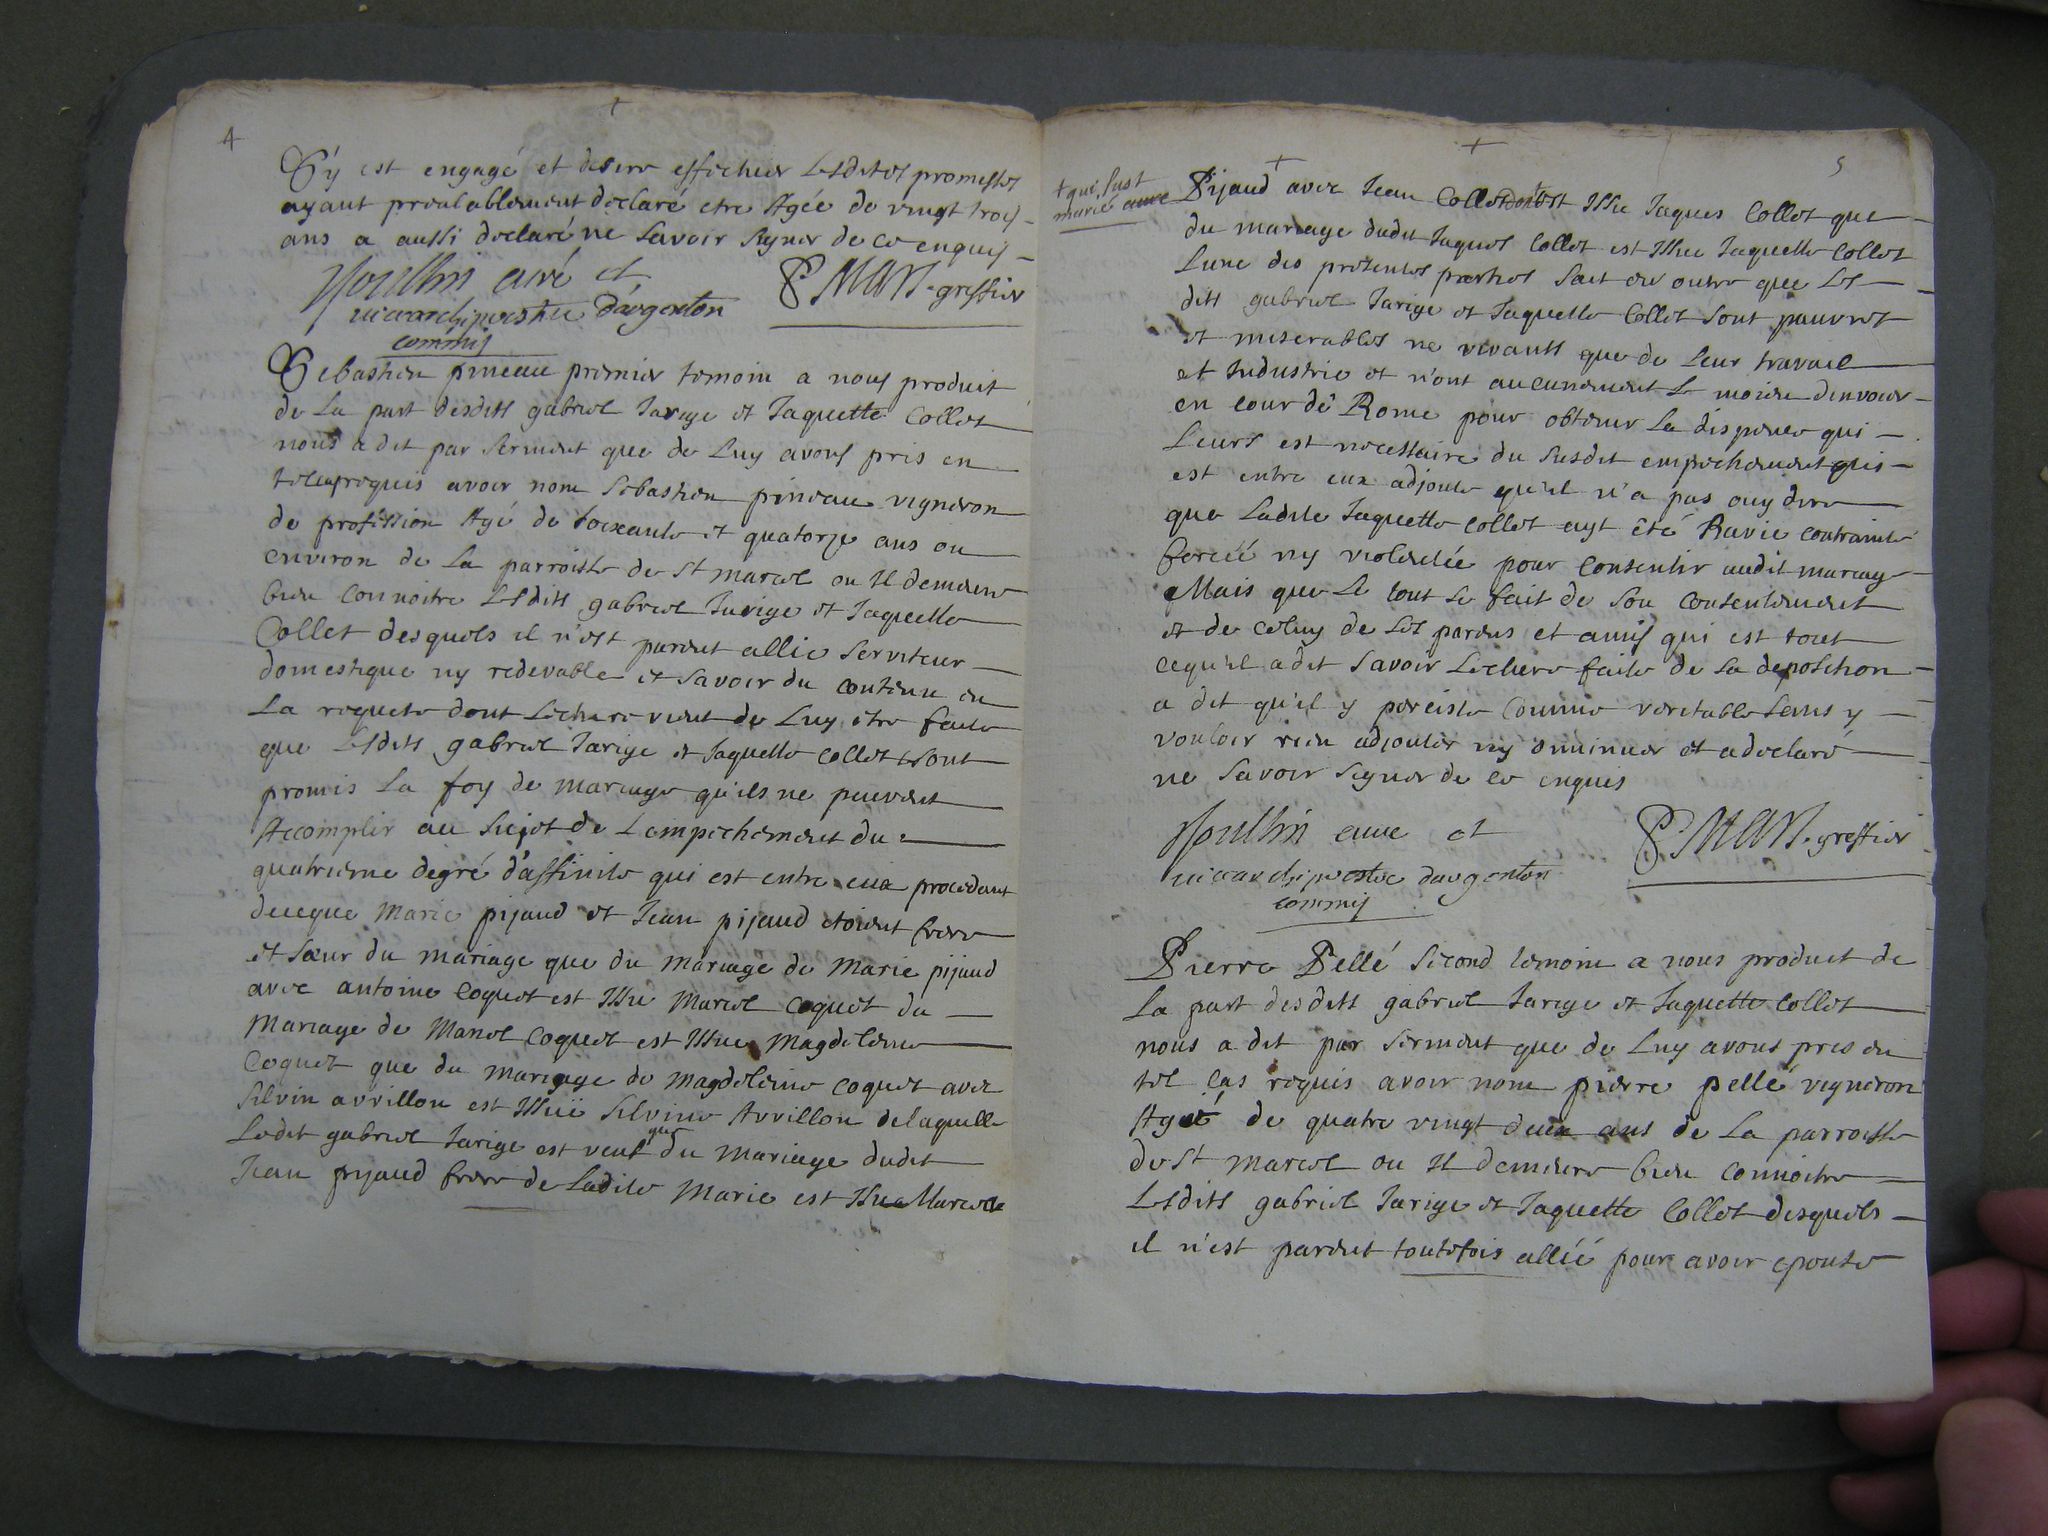 4
S'y est engagé et desire effectuer Lesdites promesses
ayant prealablement declaré etre Agée de vingt trois
ans a aussi declaré ne savoir signer de ce enquis
Moullin curé et
vicearchiprestre d'argenton
commis
greffier
Sebastien pineau premier temoin a nous produit
de La part desdits gabriel Tarige et Jaquette Collet
nous a dit par serment que de Luy avons pris en
tel cas requis avoir nom Sebastien pineau vigneron
de profession Agé de soixante et quatorze ans ou
environ de La parroisse de st marcel ou Il demeure
bien connoitre Lesdits gabriel Tarige et Jaquette
Collet desquels il n'est parent allié serviteur
domestique ny redevable et savoir du contenu en
La requete dont Lecture vient de Luy etre faite
que Lesdits gabriel Tarige et Jaquette collet se sont
promis La foy de mariage qu'ils ne peuvent
Accomplir au sujet de Lempechement du
quatrieme degré d'affinité qui est entre eux procedant
de ce que Marie pijaud et Jean pijaud etoient frere
et sœur du mariage que du mariage de Marie pijaud
avec antoine Coquet est Issu Marcel Coquet du
Mariage de Marcel Coquet est Issue Magdeleine
Coquet que du mariage de Magdeleine coquet avec
Silvin avrillon est Issuë Silvine Avrillon de laquelle
Ledit gabriel Tarige est veuf que du Mariage dudit
Jean pijaud frere de Ladite Marie est Issue Marcelle
5
+ qui fust
marié avec
Pijaud avec Jean Collet dont est Issu Jaques Collet que
du mariage dudit Jaques Collet est Issue Jaquette Collet
Lune des presentes parties sait en outre que Les
dits gabriel Tarige et Jaquette Collet sont pauvres
et miserables ne vivants que de Leur travail
et Industrie et n'ont aucunement Le moien d'envoier
en cour de Rome pour obtenir La dispence qui
Leurs est necessaire du susdit empechement qui
est entre eux adjoute qu'il n'a pas ouy dire
que Ladite Jaquette Collet ayt été Ravie contrainte
forcéé ny violentée pour consentir audit mariage
Mais que Le tout se fait de son consentement
et de celuy de ses parens et amis qui est tout
ce qu'il a dit savoir Lecture faite de sa deposition
a dit qu'il y persiste comme veritable sans y
vouloir rien adjouter ny diminuer et a declaré
ne savoir signer de ce enquis
Moullin curé et
vicearchiprestre dargenton
commis
greffier
Pierre Pellé second temoin a nous produit de
La part desdits gabriel Tarige et Jaquette Collet
nous a dit par serment que de Luy avons pris en
tel cas requis avoir nom pierre pellé vigneron
Agé de quatre vingt deux ans de La parroisse
de st Marcel ou Il demeure bien connoitre
Lesdits gabriel Tarige et Jaquette Collet desquels
il n'est parent toutefois allié pour avoir epousé